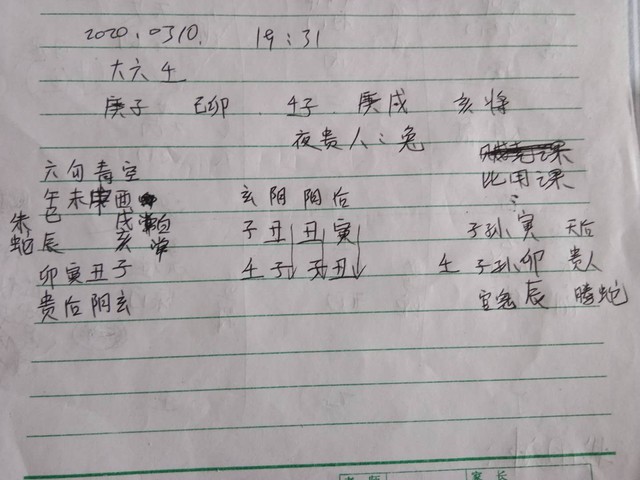 2020.0310. 19:31
大六壬
庚子 己卯 壬子 庚戌 亥将
夜贵人:兔
比用课
六句青空
午未申酉 玄阴阳后
朱 巳 戌 白 子丑丑寅 子孙寅 天后
蛇 辰 亥 常
卯寅丑子 壬子子丑 壬 子孙卯 贵人
贵后阴玄 官鬼辰 腾蛇